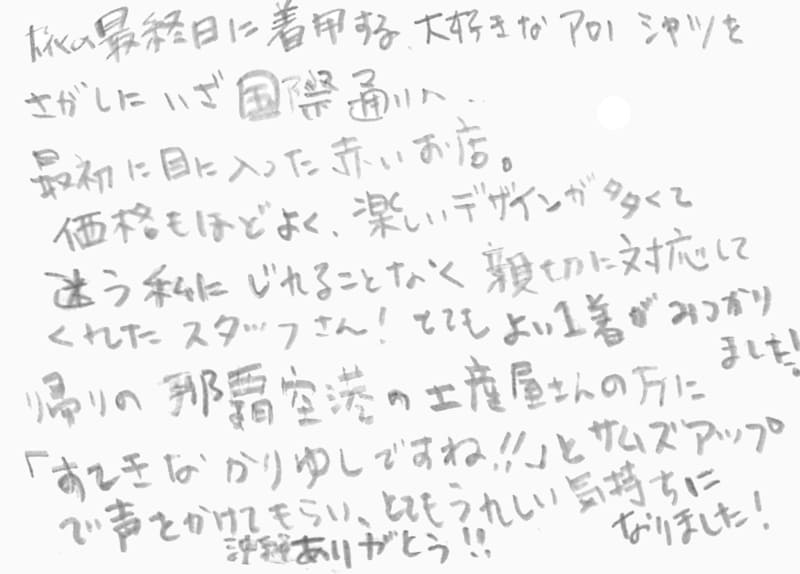 旅の最終日に着用する、大好きなアロハシャツを
さがしにいざ国際通りへ..
最初に目に入った赤いお店。
価格もほどよく、楽しいデザインが多くて
迷う私にじれることなく親切に対応して
くれたスタッフさん!とてもよい1着がみつかり
ました!
帰りの那覇空港の土産屋さんの方に
「すてきなかりゆしですね!!」とサムズアップ
で声をかけてもらい、とてもうれしい気持ちに
なりました!
沖縄ありがとう!!